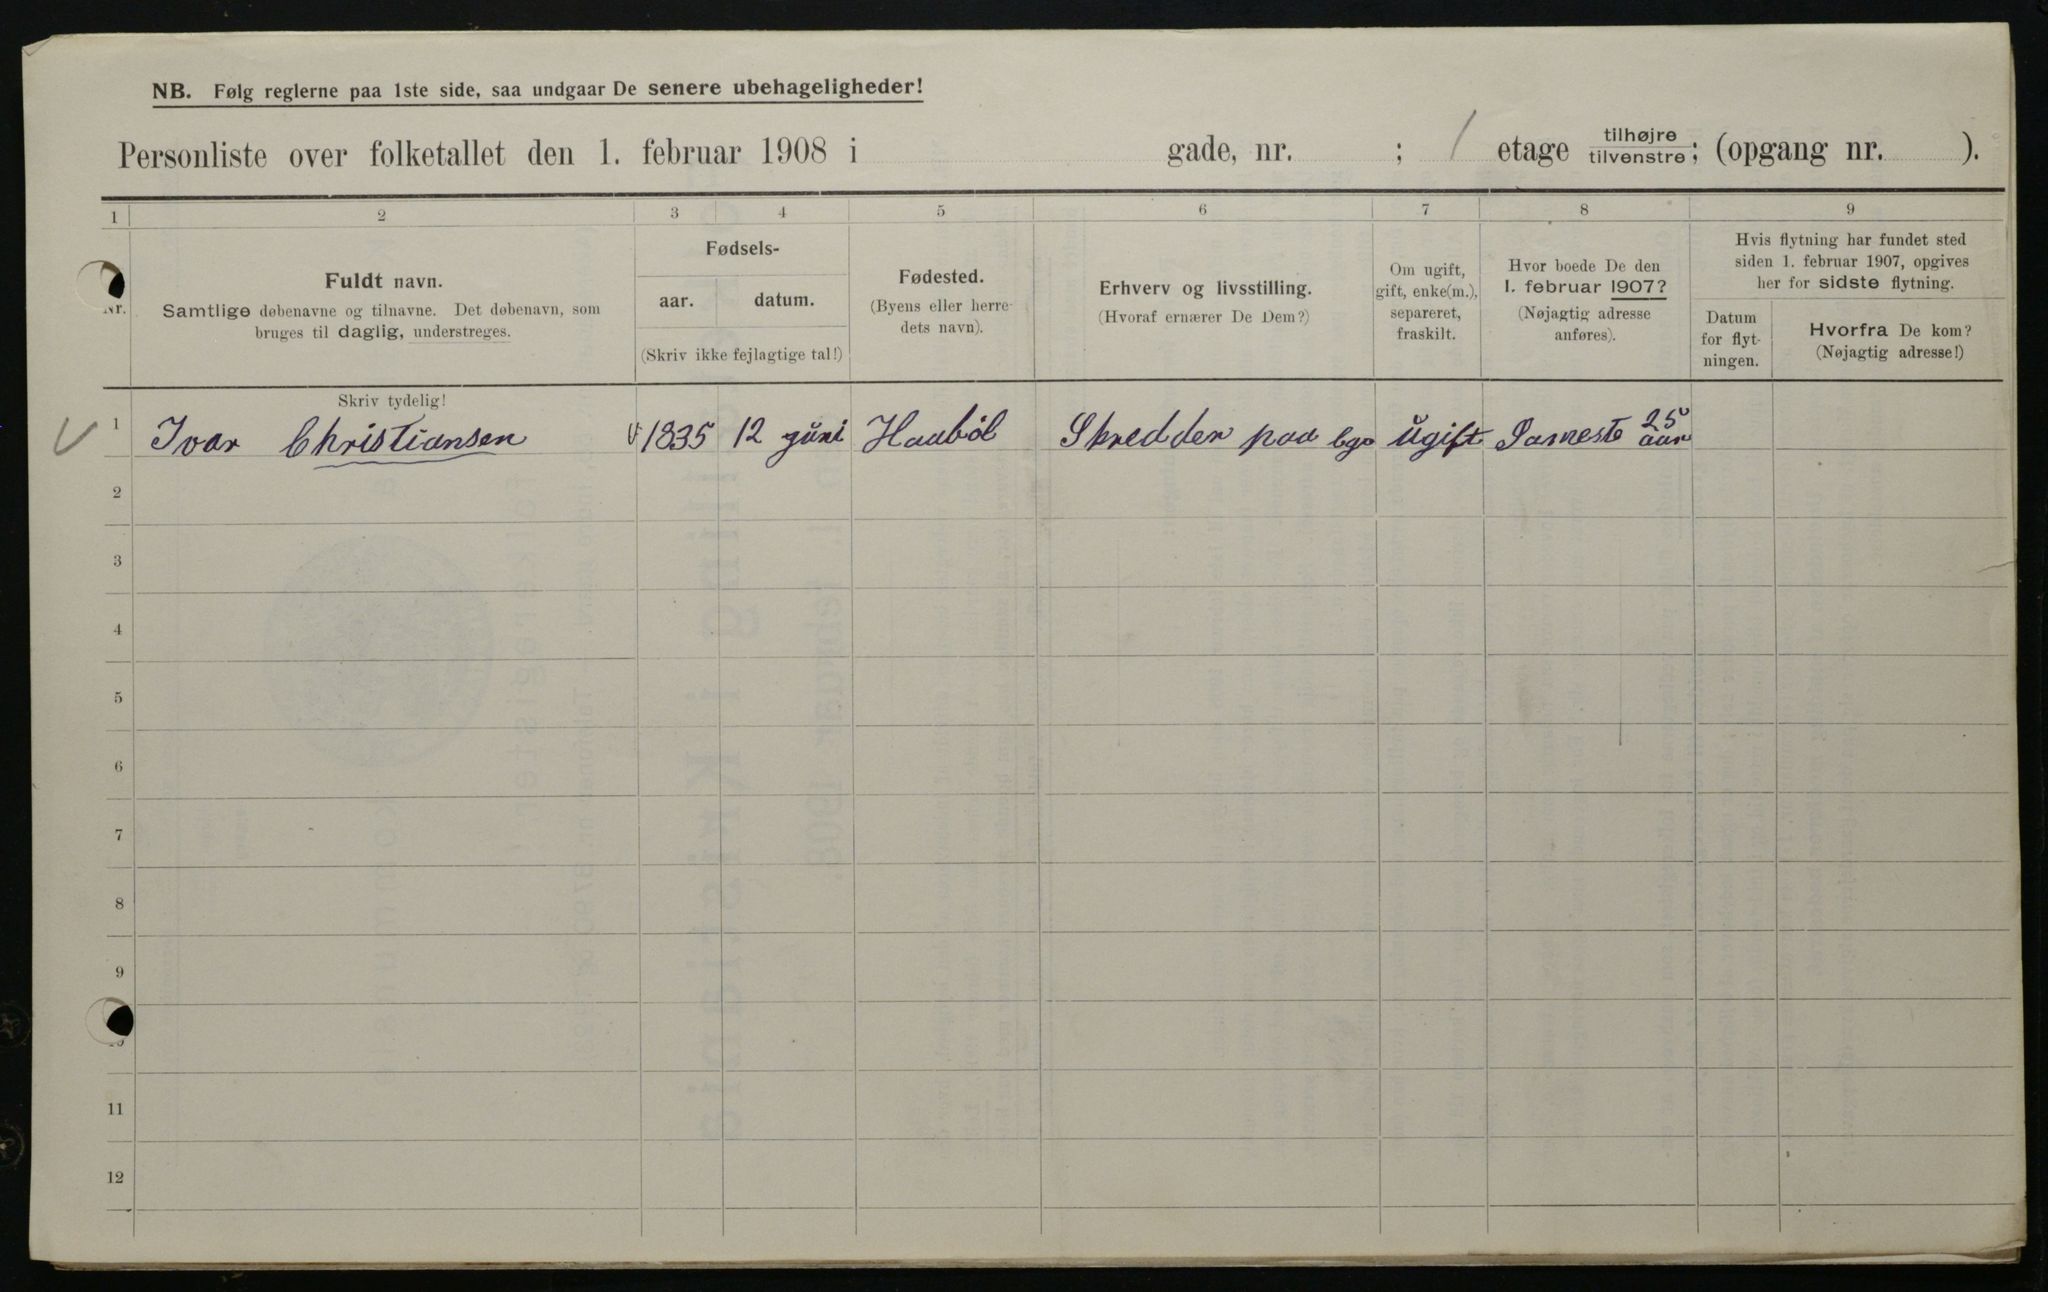 NB. Følg reglerne paa 1ste side, saa undgaar De senere ubehageligheder!
Personliste over folketallet den 1. februar 1908 i gade, nr. ; / etage tilhøjre tilvenstre; (opgang nr. ).
1 2 3 4 5 6 7 8 9
Nr.
Fuldt navn.
Samtlige døbenavne og tilnavne. Det døbenavn, som
bruges til daglig, understreges.
Fødsels-
aar. datum.
(Skriv ikke fejlagtige tal!)
Fødested.
(Byens eller herre-
dets navn).
Erhverv og livsstilling.
(Hvoraf ernærer De Dem?)
Om ugift,
gift, enke(m.),
separeret,
fraskilt.
Hvor boede De den
1. februar 1907?
(Nøjagtig adresse
anføres).
Hvis flytning har fundet sted
siden 1. februar 1907, opgives
her for sidste flytning.
Datum
for flyt-
ningen.
Hvorfra De kom?
(Nøjagtig adresse!)
Skriv tydelig!
1 Ivar Christiansen 1835 12 juni Haaböl Skredder paa ugift 25 aar
2
3
4
5
6
7
8
9
10
11
12